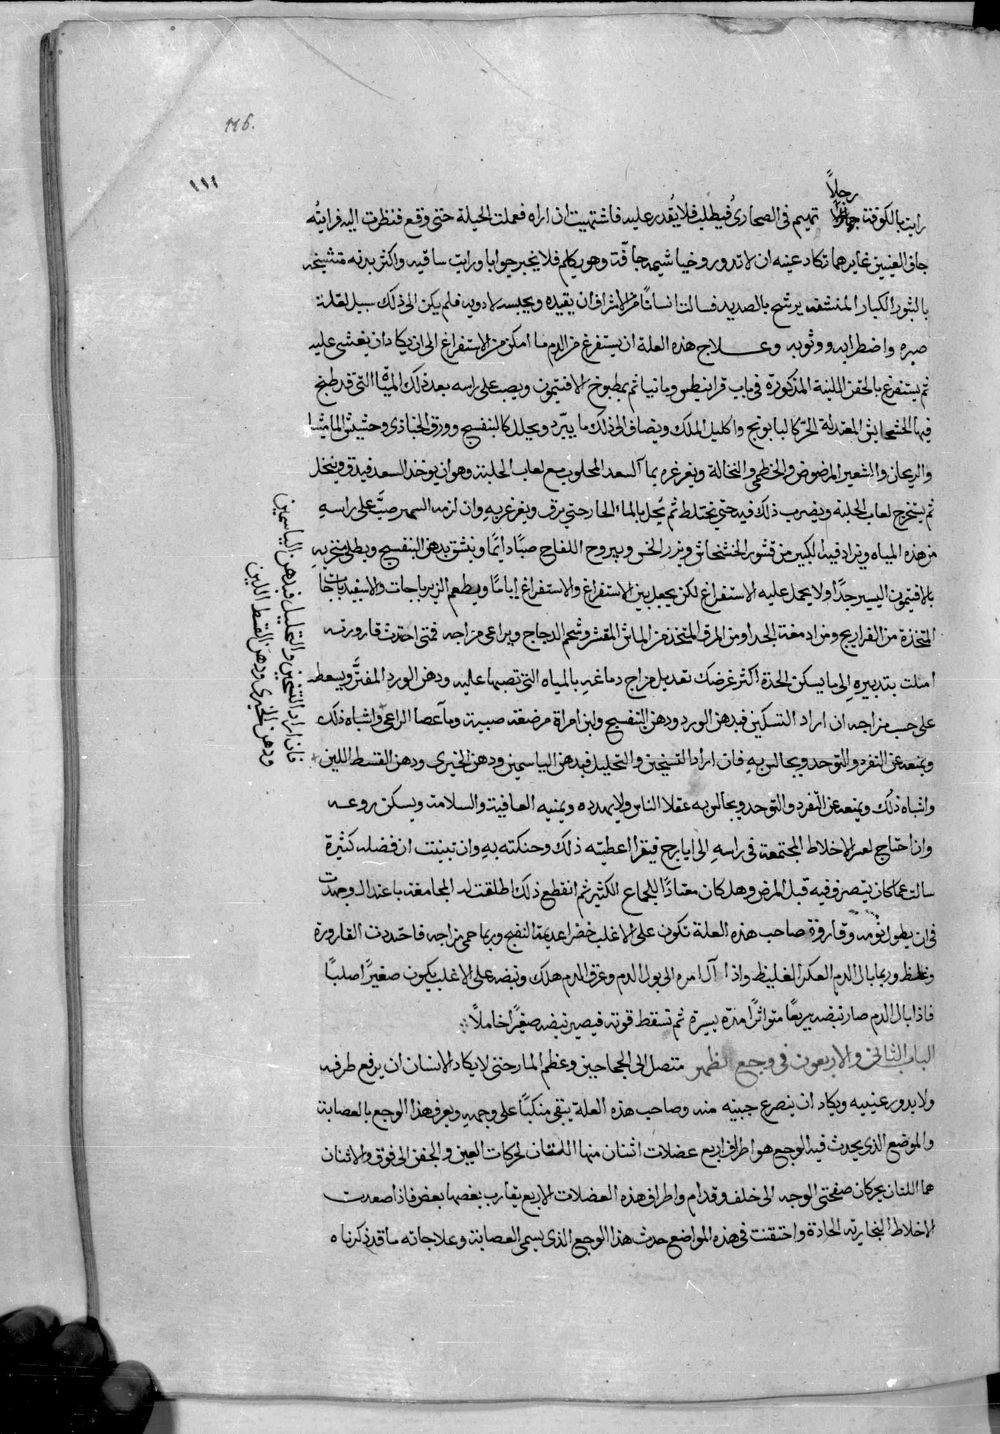 116.
١١٦
رجلاً
رايت بالكوفة تهيم فى الصحارى فيطلب فلا يُقدر عليه فاشتهيت ان اراه فعملت الحيلة حتى وقع فنظرت اليه فرايته
جاف العينين غايرهما تكاد عينه ان لا تدور وخياشيمه جافّة وهو يكلم فلا يخبر جوابا ورايت ساقيه واكثر بدنه متشيخه
بالبثور الكبار المنشقه يرشح بالصديد فسالت انسانًا من الاشراف ان يقيده ويحبسه لادويه فلم يكن الى ذلك سبيل لقلة
صبره واضطرابه ووثوبه وعلاج هذه العلة ان يستفرغ من الدم ما امكن من الاستفراغ الى ان يكاد ان يغشى عليه
ثم يستفرغ بالحقن اللينة المذكورة فى باب قرانيطس ومانيا ثم بمطبوخ الافتيمون ويصب على راسه بعد ذلك المياه التى قد طبخ
فيها الحشايش المعتدلة الحر كالبابونج واكليل الملك ويضاف الى ذلك ما يبرّد ويحلل كالبنفسج وورق الخبازى وحشيش الماميثا
والريحان والشعير المرضوض والخطمى والنخالة ويغرغره بماء السعد المحلوب مع لعاب الحلبة وهو ان يوخذ السعد فيدق وينخل
ثم يستخرج لعاب الحلبة ويضرب ذلك فيه حتى يختلط ثم يُحل بالماء الحار حتى يرق ويغرغر به وان لزمه السهر صبّ على راسه
من هذه المياه ويزاد فيه لكيين من قشور الخشخاش وبزر الخس ويبروح اللفاح صبًّا دايمًا وينشق بدهن البنفسج ويطلى منخريه
بالافتيمون اليسير جدًا ولا يحمل عليه الاستفراغ لكن يجعل بين الاستفراغ والاستفراغ ايامًا ويطعم الزيرباجات والاسفيدباجات
المتخذة من الفراريج ومن ادمغة الجدا ومن المرق المتخذ من الماش المقشر وشحم الدجاج ويراعى مزاجه فمتى احتدّت قارورته
املت بتدبيره الى ما يسكن الحدة اكثر غرضك تعديل مزاج دماغه بالمياه التى تصبها عليه ودهن الورد المفتّر ويسعط
على حسب مزاجه ان اراد التسكين فبدهن الورد ودهن البنفسج ولبن امراة مرضعة صبية وماء عصا الراعى واشباه ذلك
ويمنعه عن التفرد والتوحد ويجالس به فان اراد التسخين والتحليل فبدهن الياسمين ودهن الخيرى ودهن القسط اللين
واشباه ذلك ويمنعه عن التفرد والتوحد ويجالس به عقلا الناس ولا يهدده ويمنيه العافية والسلامة ويسكن روعه
وان احتاج لعسر الاخلاط المجتمعة فى راسه الى ايارج فيقرا اعطيته ذلك وحنكته به وان تبينت ان فضله كثيرة
سالت عما كان يتصرف فيه قبل المرض وهل كان معتادًا للجماع الكثير ثم انقطع ذلك اطلقت له المجامعة باعتدال وجهدت
فى ان يطول نومه وقارورة صاحب هذه العلة تكون على الاغلب خضرا عديمة النضج وربما حمى مزاجه فاحتدت القارورة
وغلظ وربما بال الدم العكر الغليظ واذا آل امره الى بول الدم وعرق الدم هلك ونبضه على الاغلب يكون صغيرًا صلبًا
فاذا بال الدم صار نبضه سريعًا متواترًا مدّة يسيرة ثم تسقط قوته فيصير نبضه صغيرًا خاملًا
الباب الثانى والاربعون فى وجع الظهر متصل الى الحجاجين وعظم الما رحتى لا يكاد الانسان ان يرفع طرفه
ولا يدور عينيه ويكاد ان ينصرع جبينه منه وصاحب هذه العلة يبقى منكبًّا على وجهه ويعرف هذا الوجع بالعصابة
والموضع الذى يحدث فيه الوجع هو اطراف اربع عضلات اثنتان منها اللتان لحركات العين والجفن الى فوق والاثنان
هما اللتان يحركان صفحتى الوجه الى خلف وقدام واطراف هذه العضلات الاربع يقارب بعضها بعض فاذا صعدت
الاخلاط البخارية الحادة واحتقنت فى هذه المواضع حدث هذا الوجع الذى يسمى العصابة وعلاجاته ما قد ذكرناه
فان اراد التسخين والتحليل فبدهن الياسمين
ودهن الخيرى ودهن القسط اللين